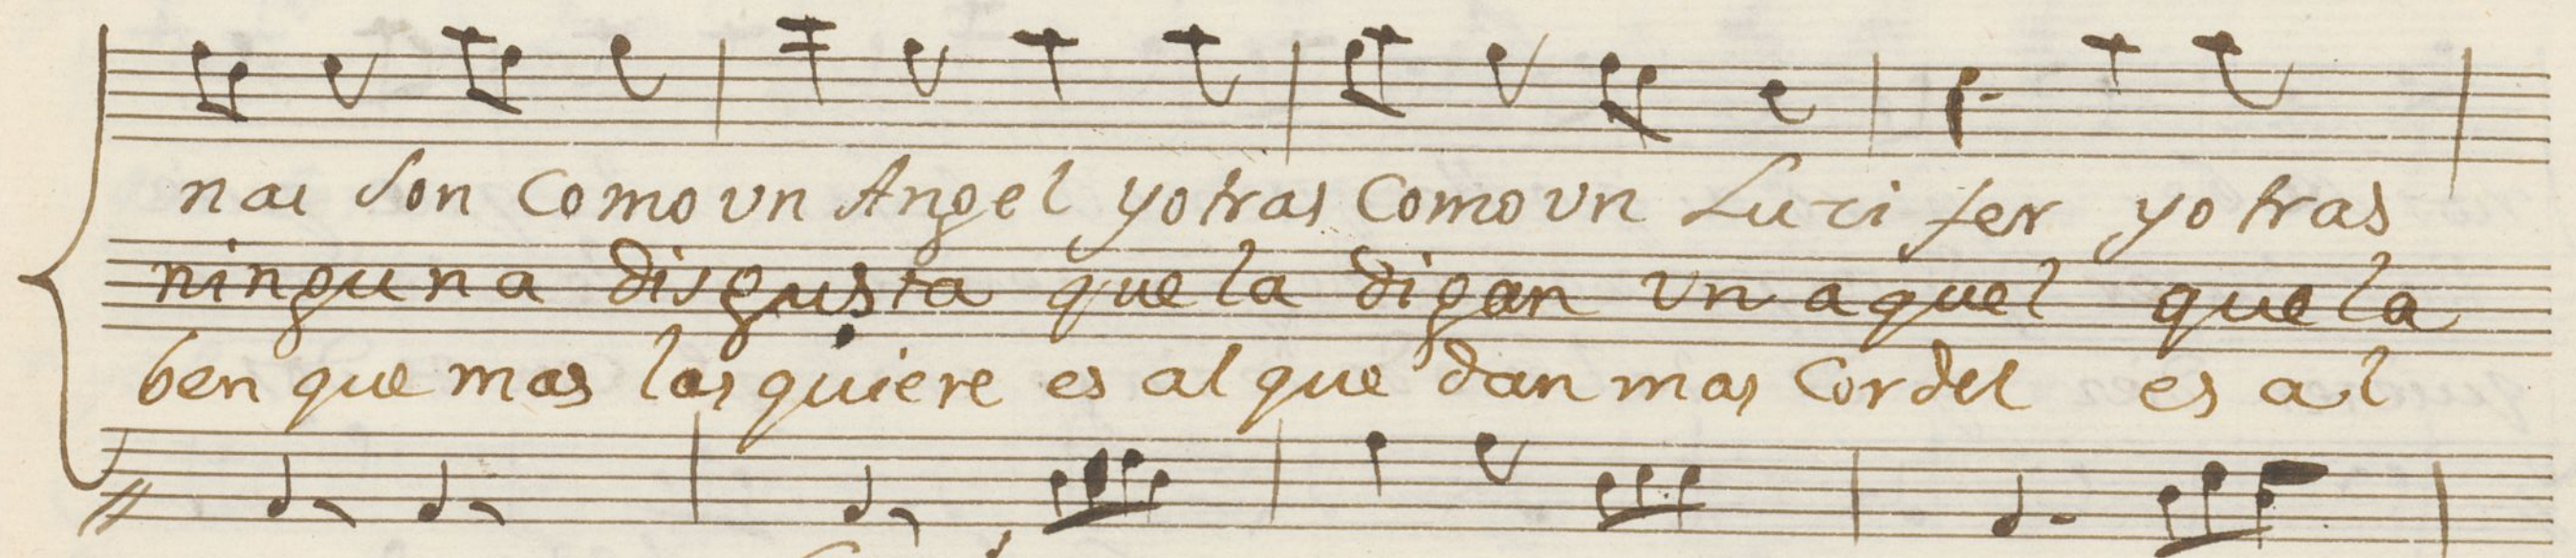 nas son como vn Angel yotras como vn Luci fer yo tras
ninguna disgusta que la digan vn aquel que la
ben que mas las quiere es al que dan mas Cordel es al